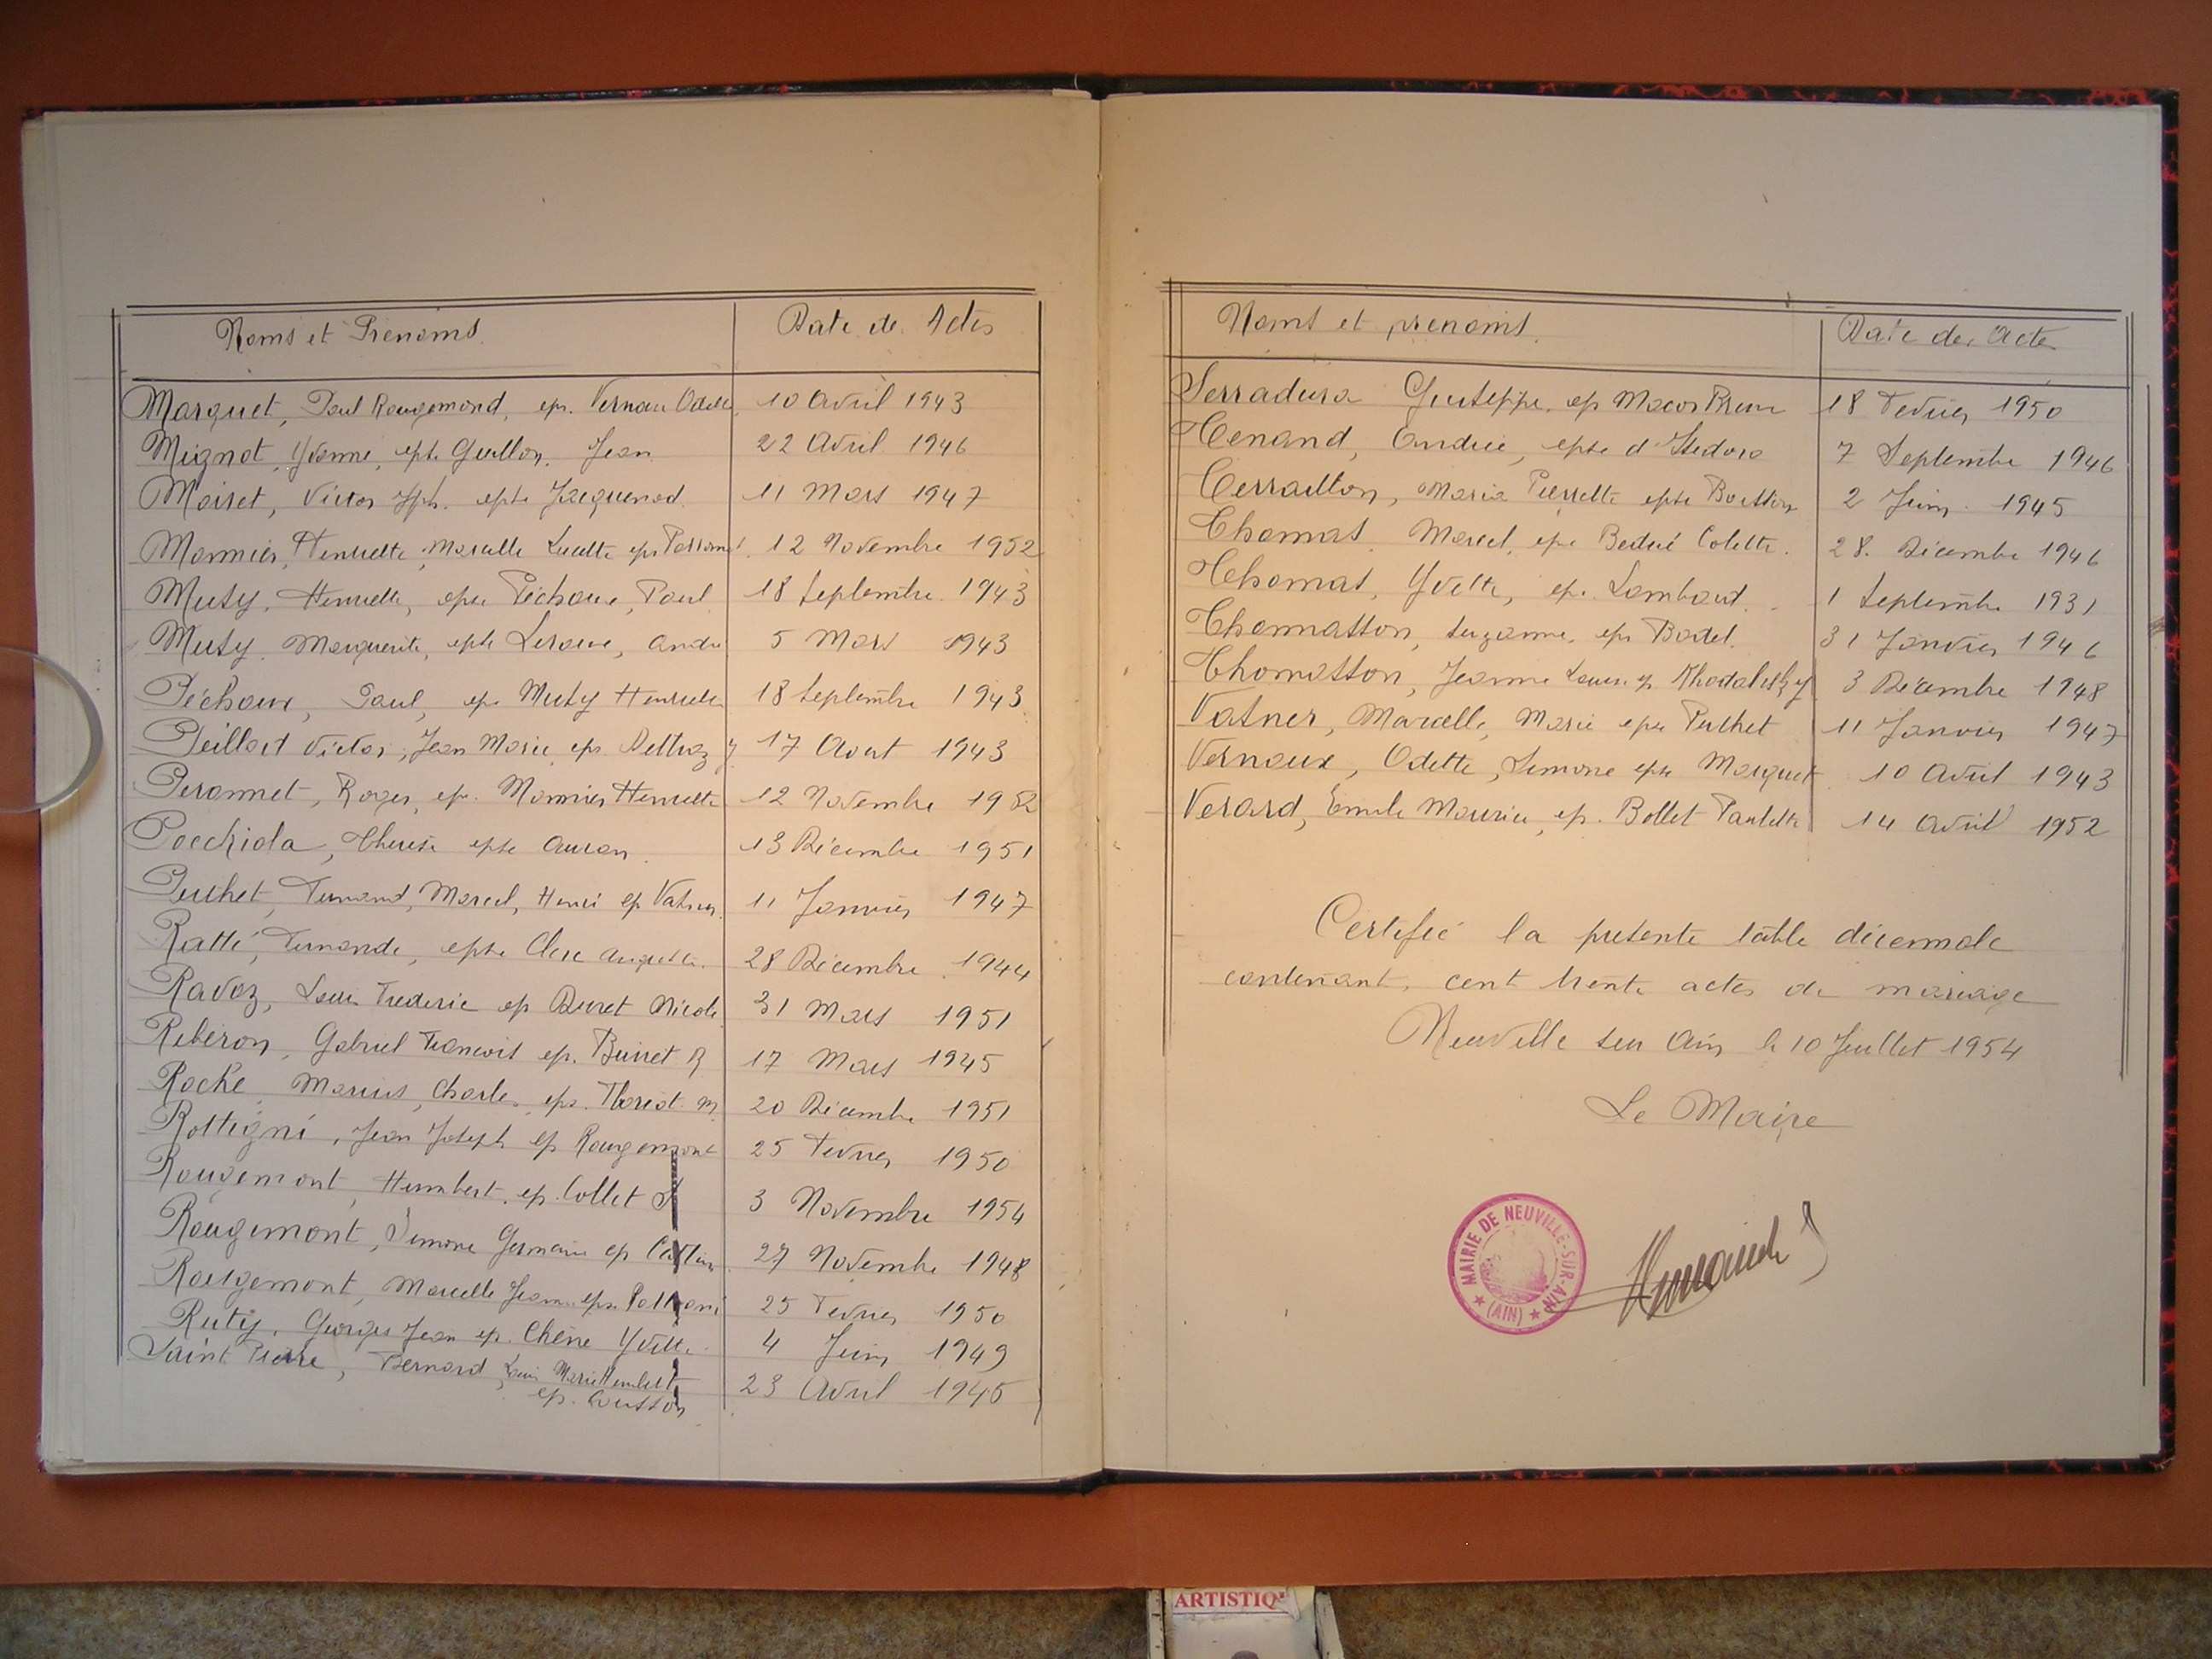 Noms et Prenoms Date de Actes
Marquet, Paul Rougemond, ep. Vernau Odette 10 Avril 1943
Mignot, Yvonne, epse Guillon, Jean 22 Avril 1946
Moiret, Victor Jph. epse Jacquenod. 11 Mars 1947
Monnier, Henriette, Marcelle Lucette epse 12 Novembre 1952
Musy, Henriette, epse Péchoux, Paul 18 Septembre 1943
Musy Marguerite, epse Leroux, André 5 Mars 1943
Péchoux, Paul, ep. Musy Henriette 18 Septembre 1943
Peillart Victor, Jean Marie ep. 17 Aout 1943
Peronnet, Roger, ep. Monnier Henriette 12 Novembre 1952
Pocchiola, Therese epse Auran 13 Décembre 1951
Puthet, Fernand, Marcel, Henri ep Vatner. 11 Janvier 1947
Ratté, Fernande, epse Clerc 28 Décembre 1944
Ravoz, Louis Frederic ep Duret Nicole 31 Mars 1951
Reberon, Gabriel Francois ep. Buiret 17 Mars 1945
Roche Marius, Charles, ep. Thoriot. M 20 Décembre 1951
Rottigni, Jean Joseph ep Rougemont 25 Fevrier 1950
Rougemont, Humbert. ep. Collet 3 Novembre 1954
Rougemont, Simone Germaine ep 27 Novembre 1948
Rougemont, Marcelle Jeanne epse 25 Fevrier 1950
Ruty, Georges Jean ep. Chêne Yvette. 4 Juin 1949
Saint Pierre, Bernard, Louis Marie Humbert 23 Avril 1945
ep. Cousson
Noms et prenoms. Date des Actes
Serradura Giuseppe. ep 18 Fevrier 1950
Tenand, Andrée, epse d'Isidoro 7 Septembre 1946
Terraillon, Maria Pierrette epse 2 Juin 1945
Thomas Marcel, ep. Bedué Colette. 28. Décembre 1946
Thomas, Yvette, ep. Lombard. 1 Septembre 1931
Thomasson, Suzanne, ep Badel. 31 Janvier 1946
Thomasson, Jeanne Louise ep. 3 Décembre 1948
Vatner, Marcelle, Marie epse Puthet 11 Janvier 1947
Vernoux, Odette, Simone epse Marquet 10 Avril 1943
Verard, Emile Maurice, ep. Bollet Paulette 14 Avril 1952
Certifié la présente table décennale
contenant, cent trente actes de mariage
Neuville sur Ain le 10 Juillet 1954
Le Maire
MAIRIE DE NEUVILLE-SUR-AIN
(AIN)
ARTISTIQ